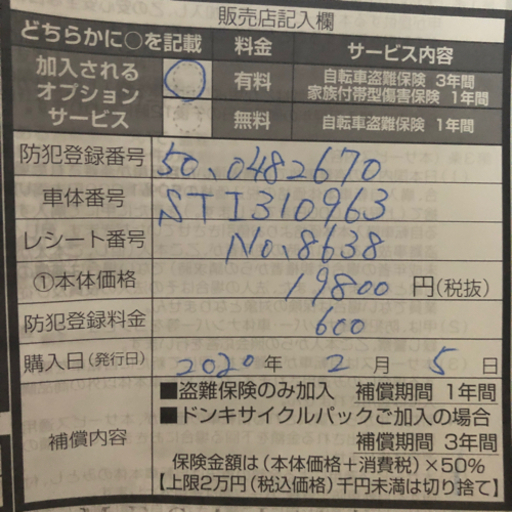 販売店記入欄
どちらかに○を記載 料金 サービス内容
加入される
オプション
サービス
有料 自転車盗難保険 3年間
家族付帯型傷害保険 1年間
無料 自転車盗難保険 1年間
防犯登録番号 50、0482670
車体番号 STI310963
レシート番号 No、8638
①本体価格 19800 円(税抜)
防犯登録料金 600
購入日(発行日) 2020 年 2 月 5 日
補償内容
■盗難保険のみ加入 補償期間 1年間
■ドンキサイクルパックご加入の場合
補償期間 3年間
保険金額は(本体価格+消費税)×50%
【上限2万円(税込価格)千円未満は切り捨て】